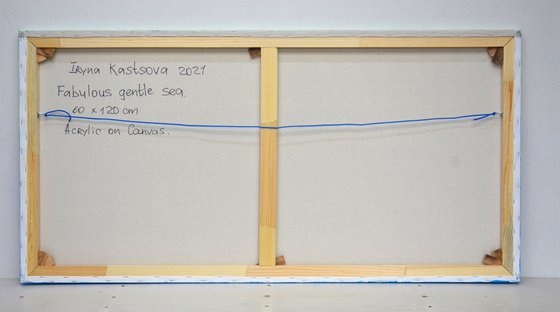 Iryna Kastsova 2021
Fabulous gentle sea.
60 x 120 cm
Acrylic on Canvas.